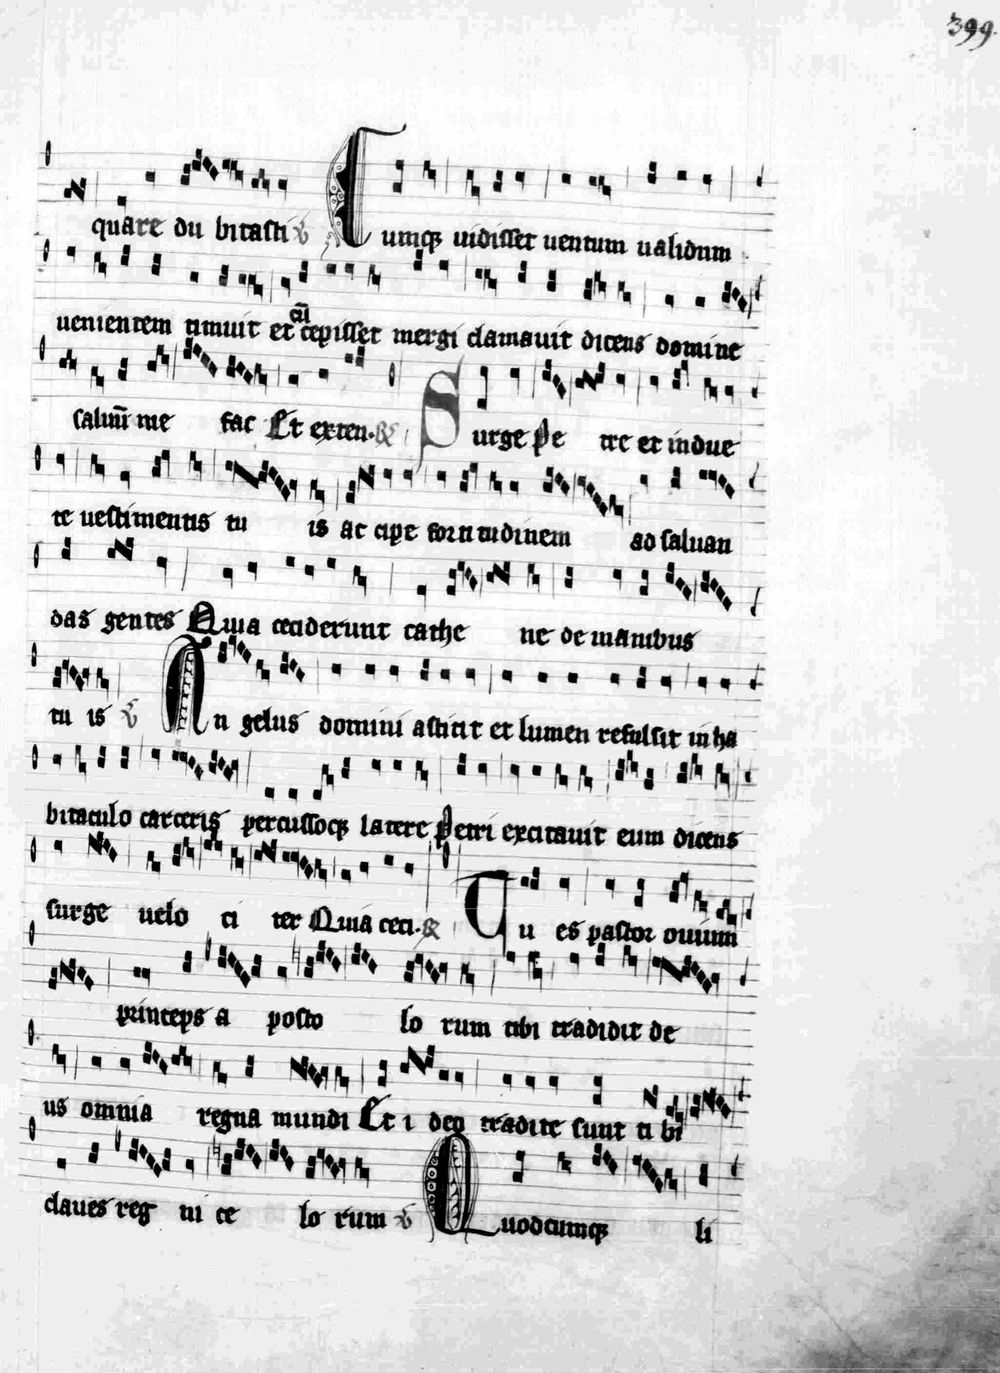 399.
quare du bitasti ℣ Cumq; uidisset uentum ualidum
uenientem timuit et cū cepisset mergi clamauit dicens domine
saluū me fac Et exten. ℟ Surge Pe tre et indue
te uestimentis tu is ac cipe forti tudinem ad saluan
das gentes Quia ceciderunt cathe ne de manibus
tu is ℣ An gelus domini astitit et lumen refulsit in ha
bitaculo carceris percussoq; latere Petri excitauit eum dicens
surge uelo ci ter Quia ceci. ℟ Tu es pastor ouium
princeps a posto lo rum tibi tradidit de
us omnia regna mundi Et i deo tradite sunt ti bi
claues reg ni ce lo rum ℣ Quodcumq; li